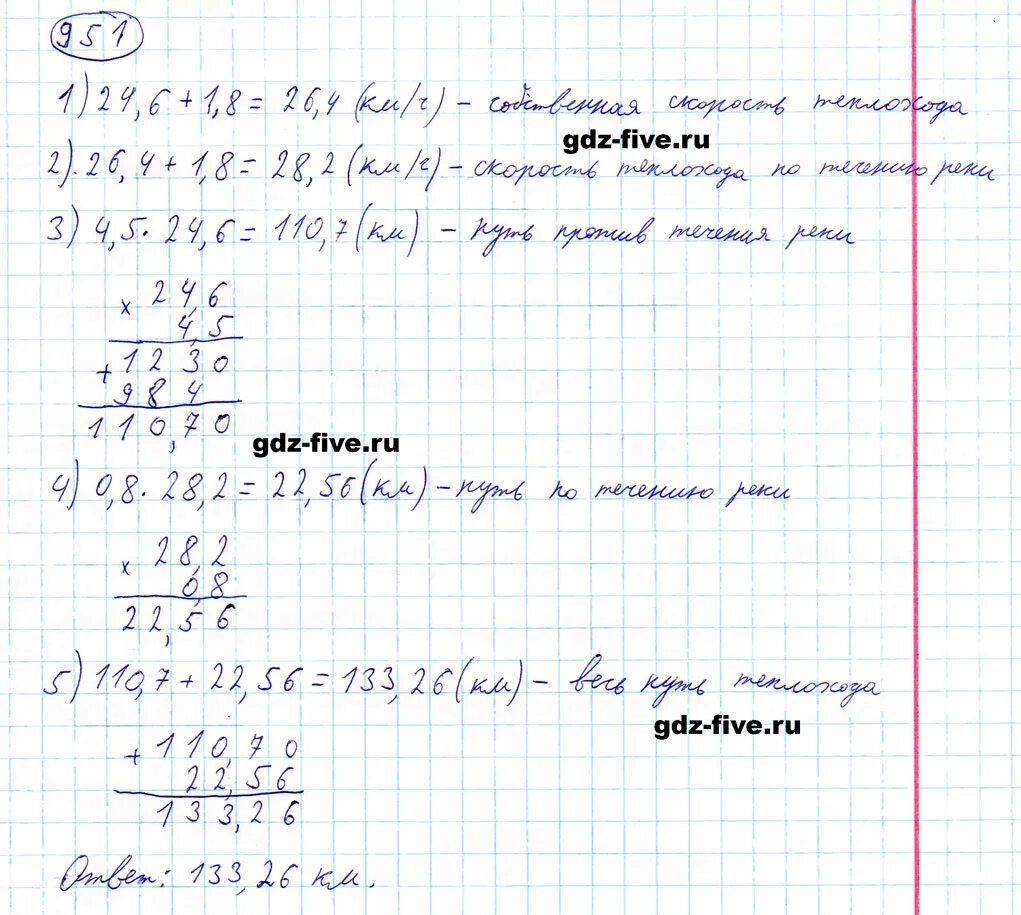 951
1) 24,6 + 1,8 = 26,4 (км/ч) - собственная скорость теплохода
gdz-five.ru
2) 26,4 + 1,8 = 28,2 (км/ч) - скорость теплохода по течению реки
3) 4,5 · 24,6 = 110,7 (км) - путь против течения реки
× 24,6
4,5
+ 1230
984
110,70
gdz-five.ru
4) 0,8 · 28,2 = 22,56 (км) - путь по течению реки
× 28,2
0,8
22,56
5) 110,7 + 22,56 = 133,26 (км) - весь путь теплохода
gdz-five.ru
+ 110,70
22,56
133,26
Ответ: 133,26 км.